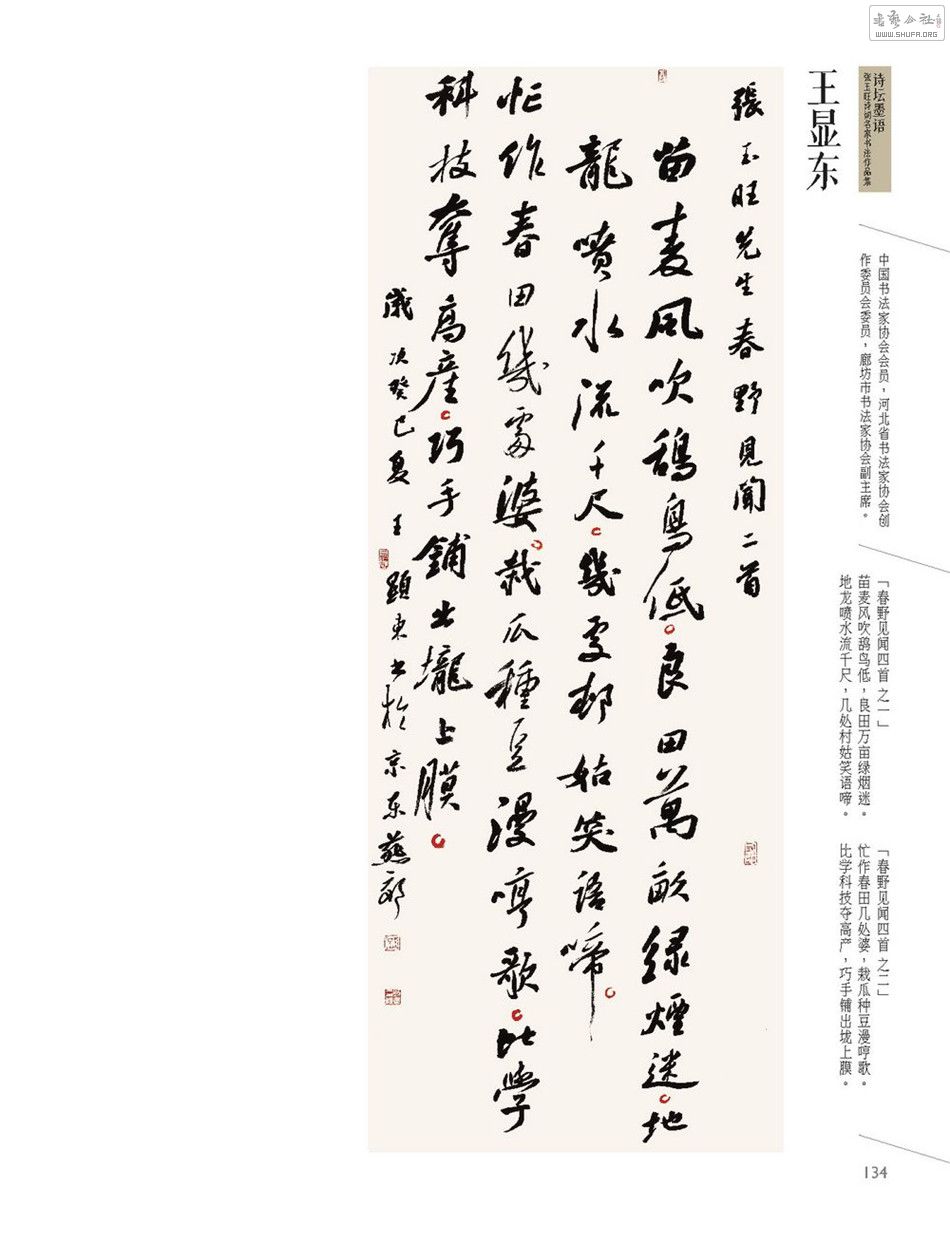 WWW.SHUFA.ORG
诗坛墨语
张玉旺诗词名家书法作品集
王显东
中国书法家协会会员，河北省书法家协会创
作委员会委员，廊坊市书法家协会副主席。
「春野见闻四首 之一」
苗麦风吹鹄鸟低，良田万亩绿烟迷。
地龙喷水流千尺，几处村姑笑语啼。
「春野见闻四首 之二」
忙作春田几处婆，栽瓜种豆漫哼歌。
比学科技夺高产，巧手铺出垅上膜。
張玉旺先生春野見聞二首
苗麦風吹鹄鳥低良田萬畝绿煙迷地
龍噴水流千尺幾处邨姑笑語啼
忙作春田幾處婆栽瓜種豆漫哼歌比學
科技奪高産巧手鋪出壠上膜
歲次癸巳夏王顕東书於京东燕郊
134